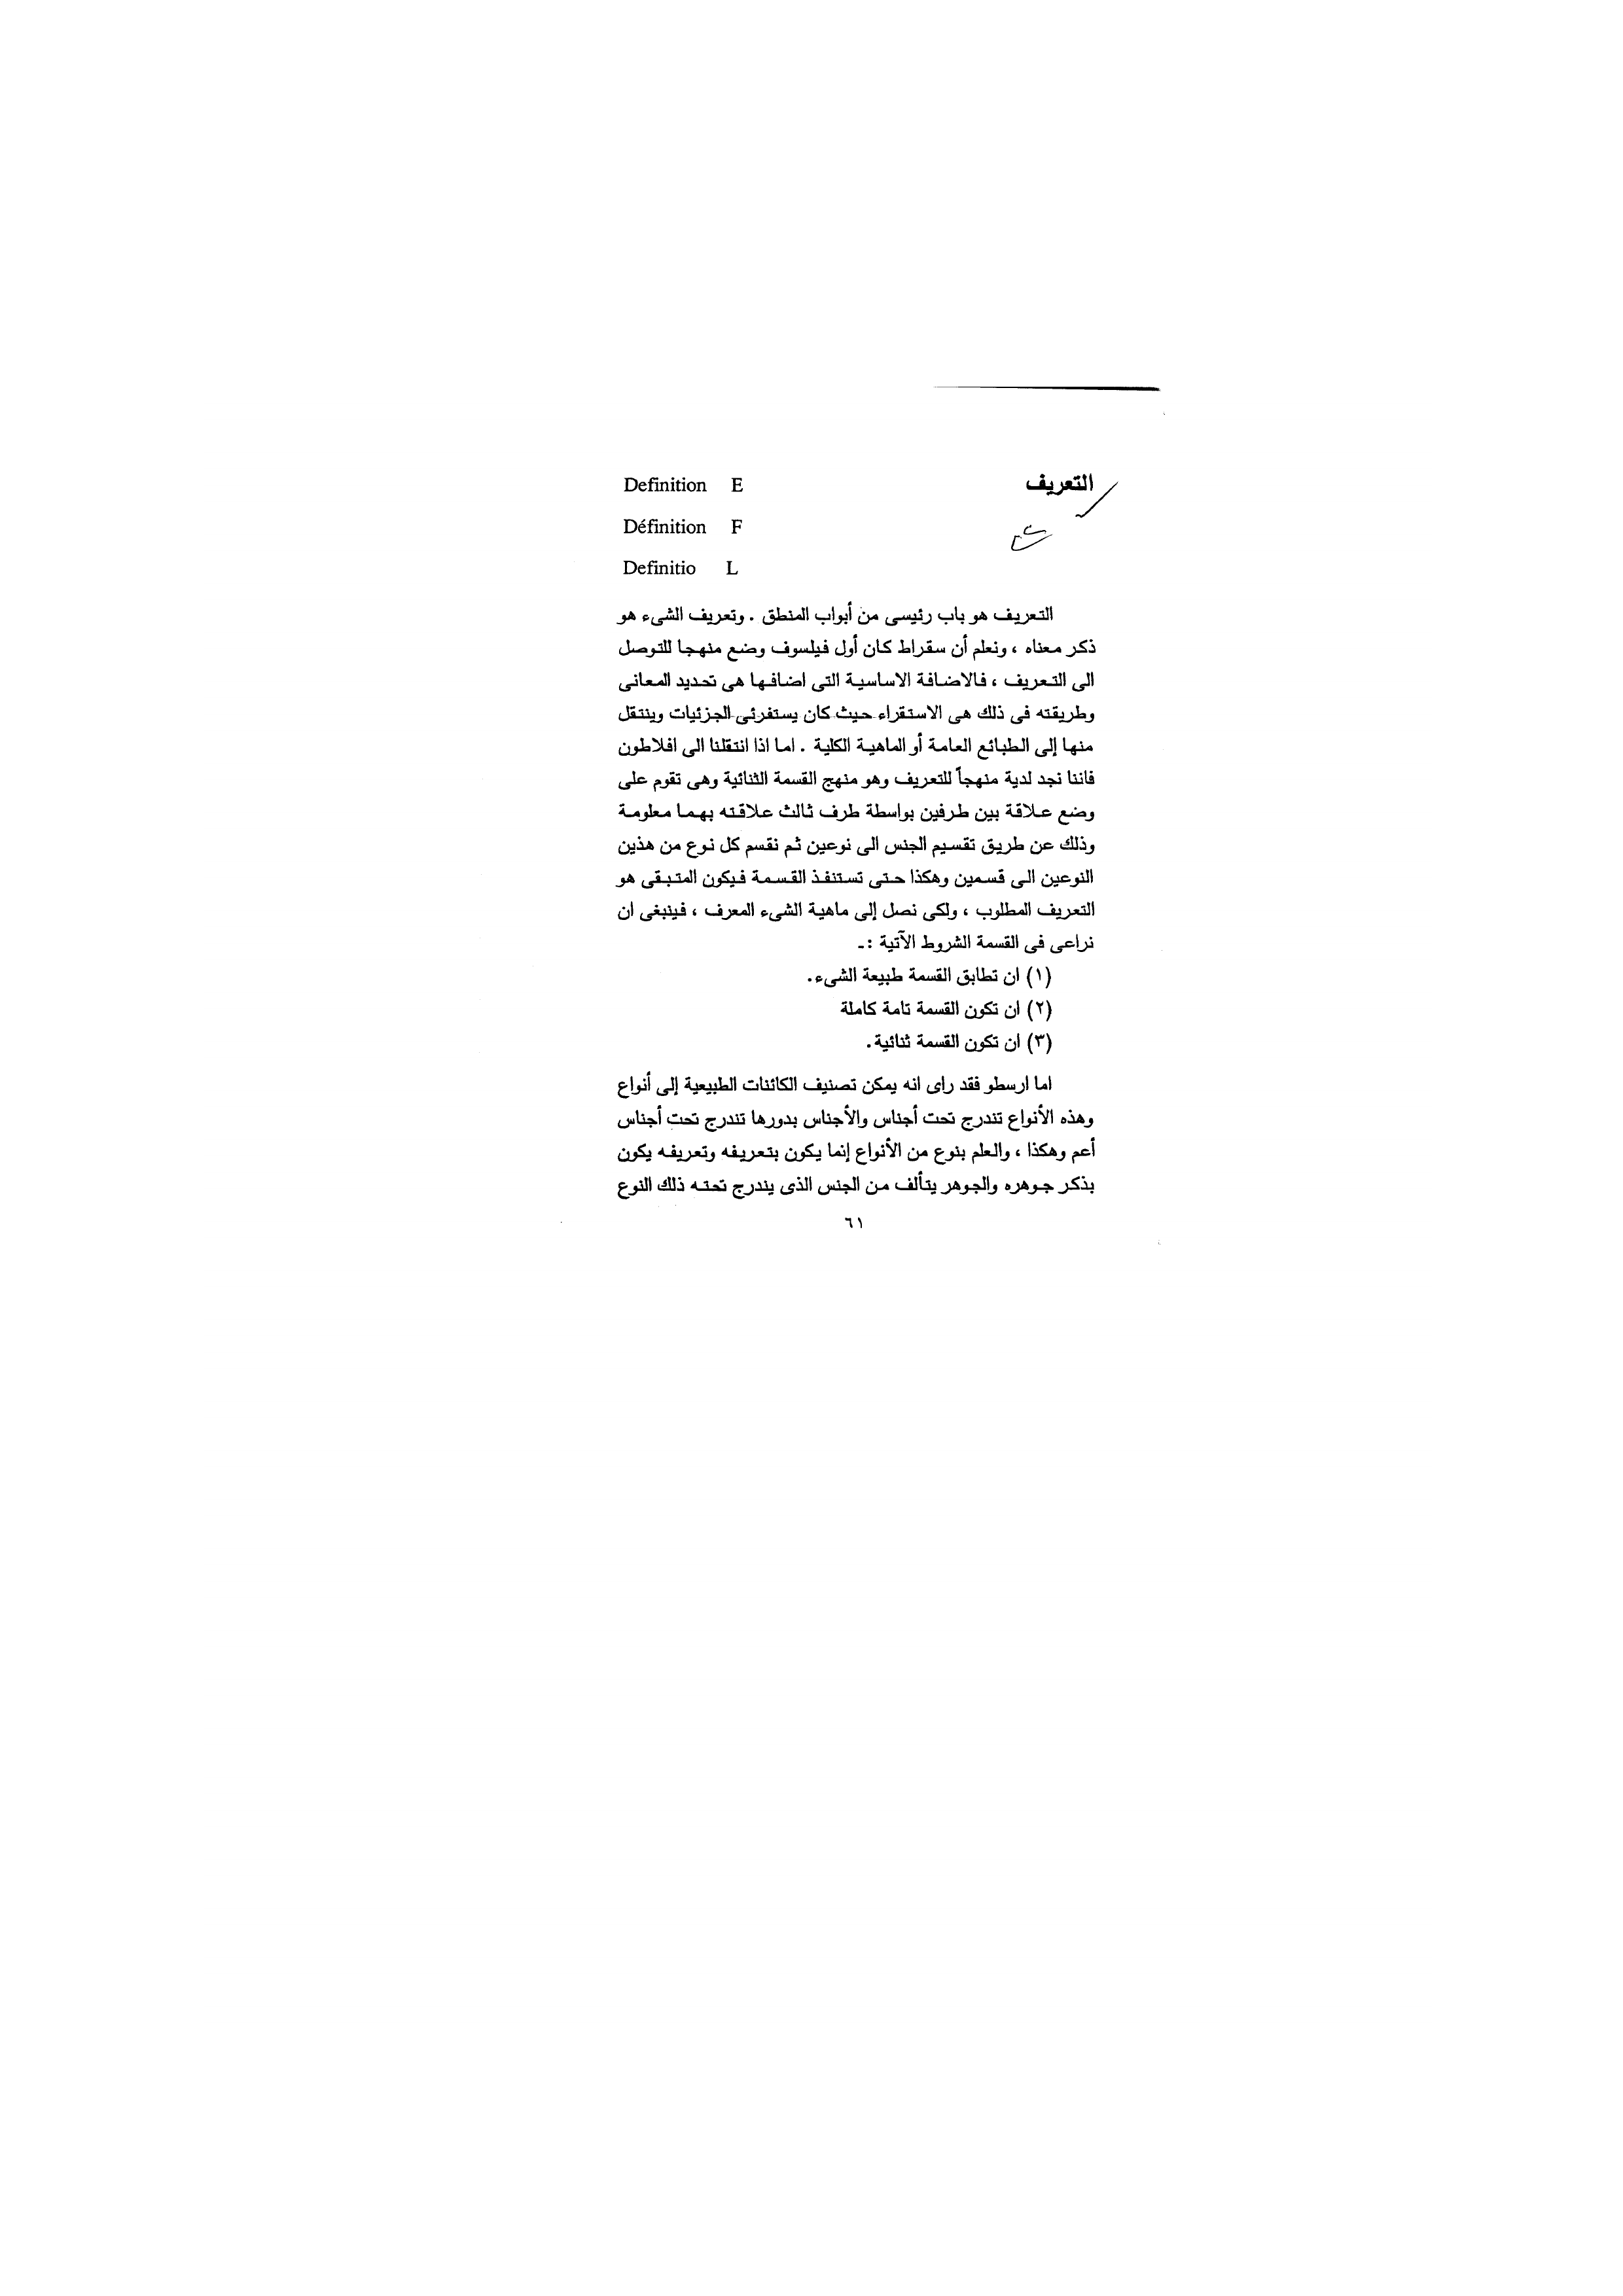 التعريف
Definition E
Définition F
Definitio L
التعريف هو باب رئيسى من أبواب المنطق . وتعريف الشىء هو
ذكر معناه ، ونعلم أن سقراط كان أول فيلسوف وضع منهجا للتوصل
الى التعريف ، فالاضافة الاساسية التى اضافها هى تحديد المعانى
وطريقته فى ذلك هى الاستقراء حيث كان يستفرئى الجزئيات وينتقل
منها إلى الطبائع العامة أو الماهية الكلية . اما اذا انتقلنا الى افلاطون
فاننا نجد لدية منهجاً للتعريف وهو منهج القسمة الثنائية وهى تقوم على
وضع علاقة بين طرفين بواسطة طرف ثالث علاقته بهما معلومة
وذلك عن طريق تقسيم الجنس الى نوعين ثم نقسم كل نوع من هذين
النوعين الى قسمين وهكذا حتى تستنفذ القسمة فيكون المتبقى هو
التعريف المطلوب ، ولكى نصل إلى ماهية الشىء المعرف ، فينبغى ان
نراعى فى القسمة الشروط الآتية :ـ
(١) ان تطابق القسمة طبيعة الشىء.
(٢) ان تكون القسمة تامة كاملة
(٣) ان تكون القسمة ثنائية.
اما ارسطو فقد راى انه يمكن تصنيف الكائنات الطبيعية إلى أنواع
وهذه الأنواع تندرج تحت أجناس والأجناس بدورها تندرج تحت أجناس
أعم وهكذا ، والعلم بنوع من الأنواع إنما يكون بتعريفه وتعريفه يكون
بذكر جوهره والجوهر يتألف من الجنس الذى يندرج تحته ذلك النوع
٦١